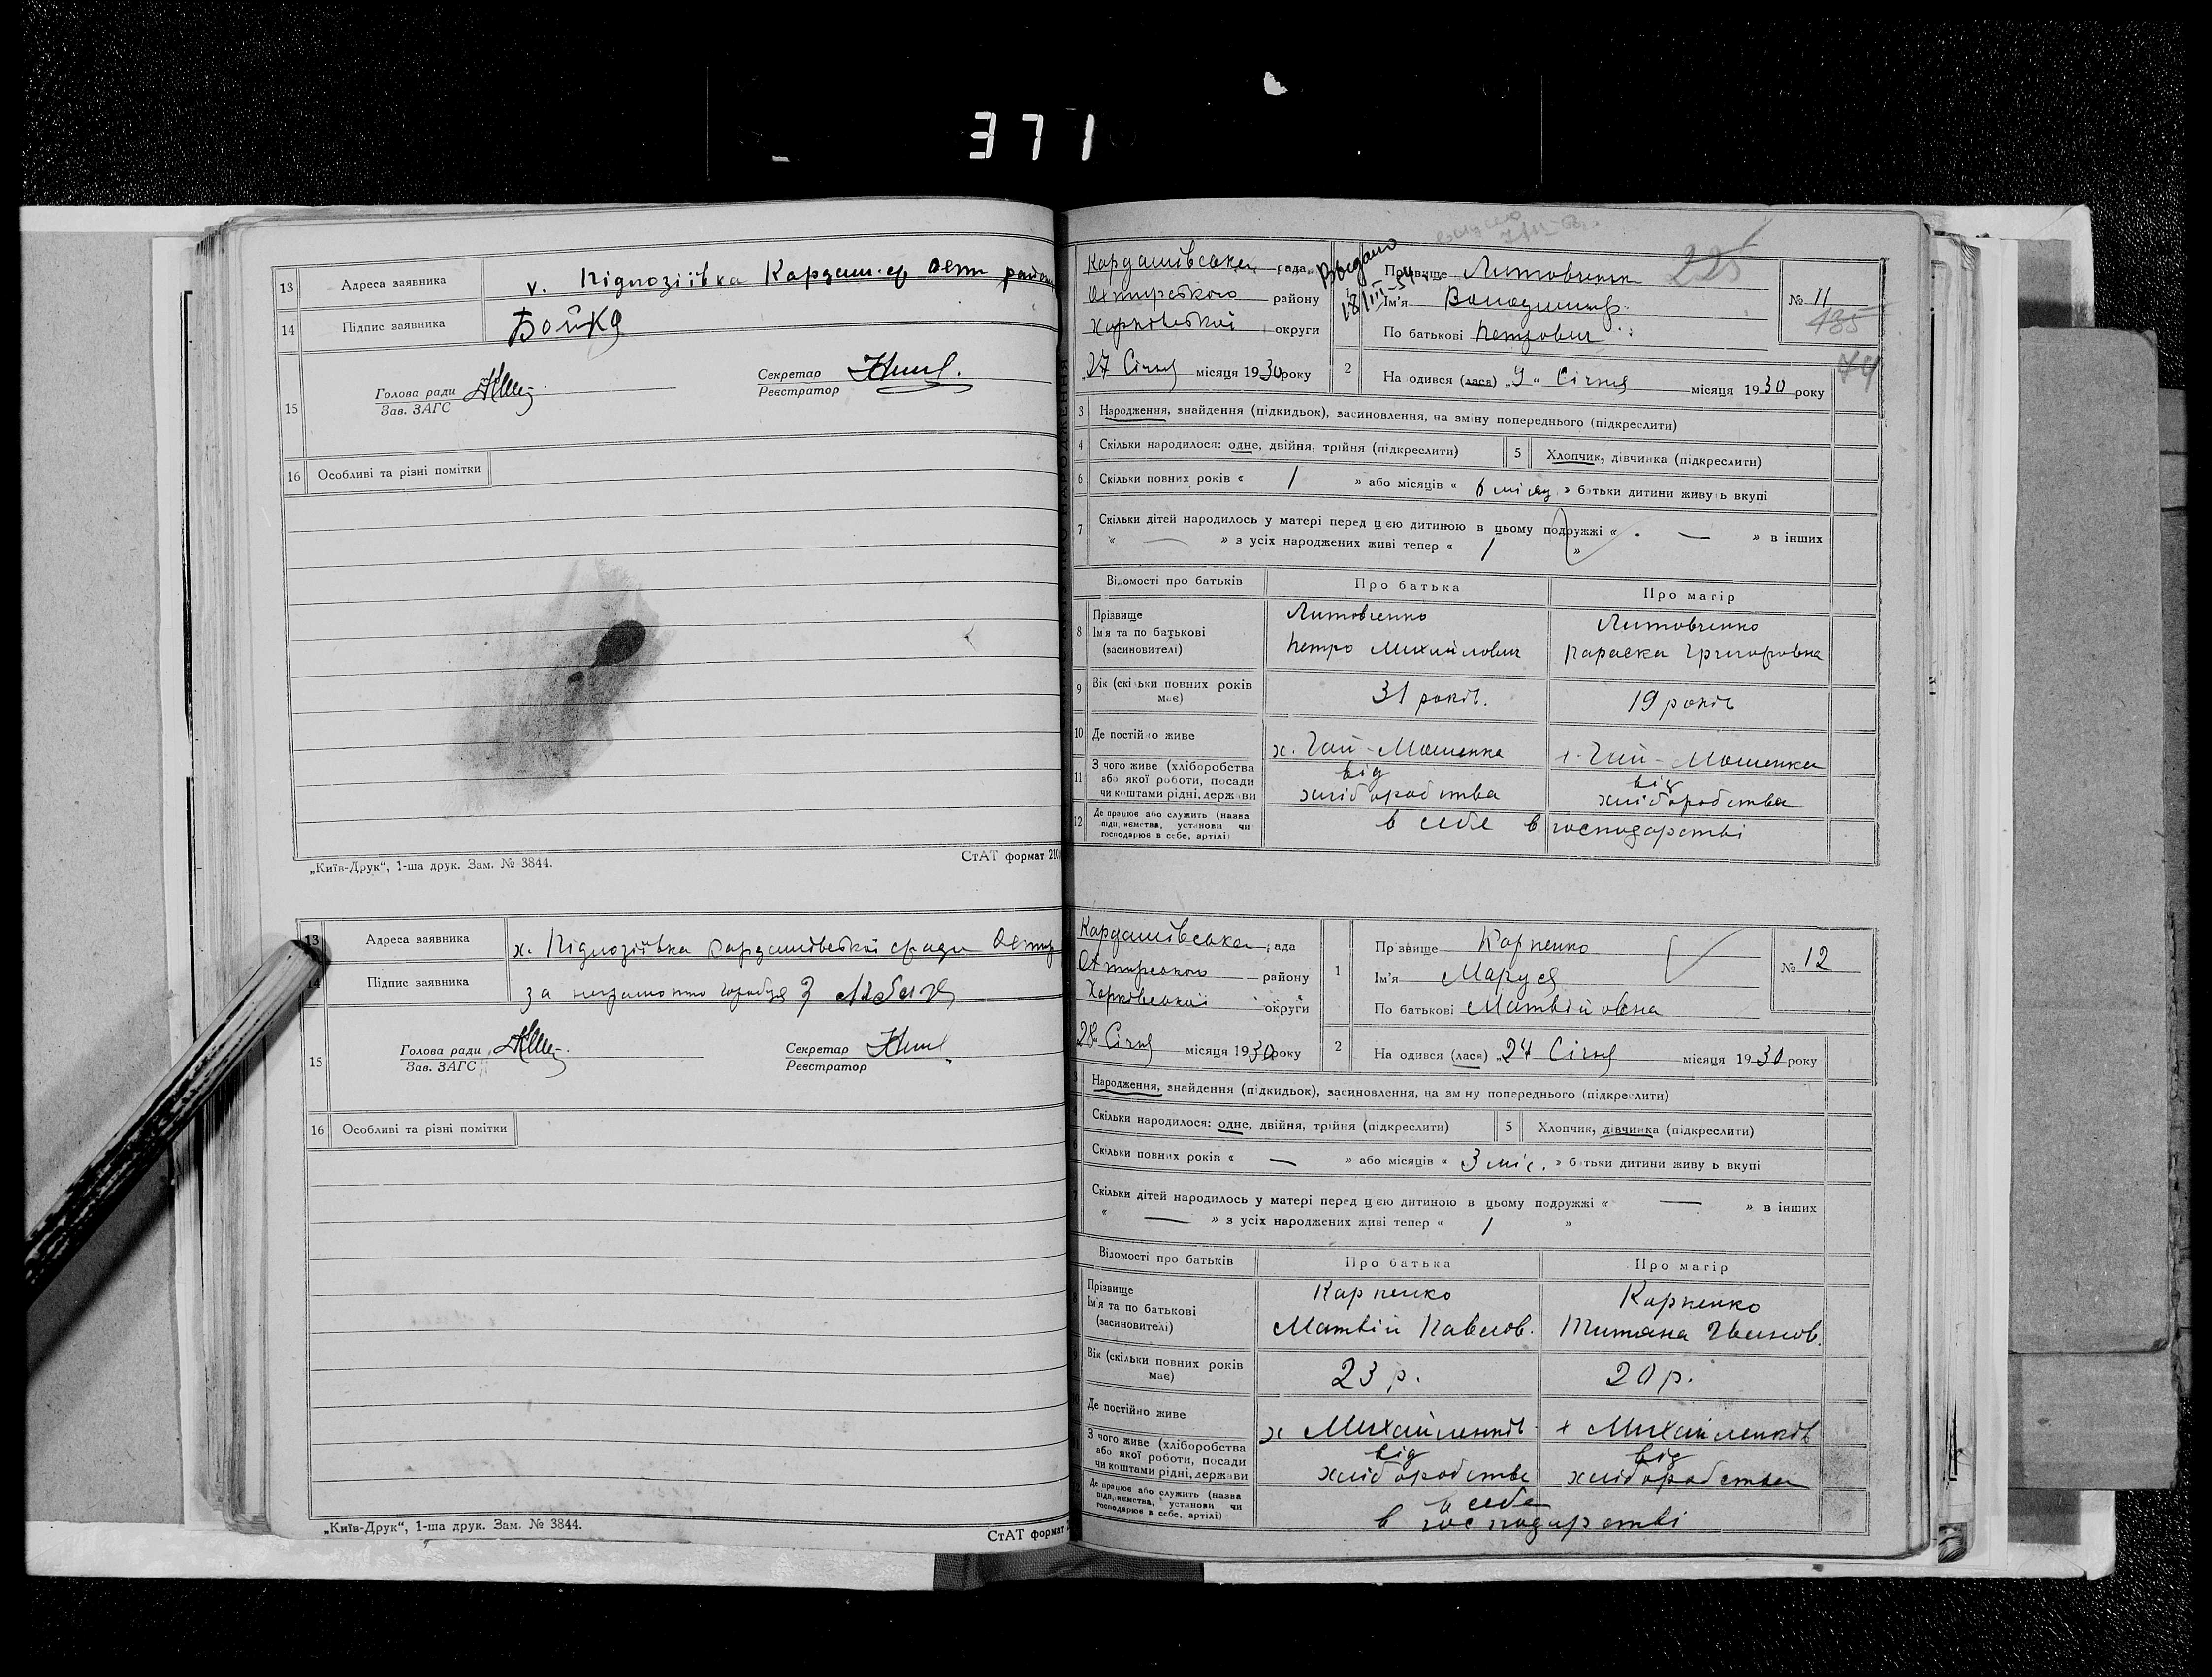 371
13 Адреса заявника х. Підлозіївка Кардаш. с/р Охт району
14 Підпис заявника Бойко
15 Голова ради Зав. ЗАГС
Секретар Реєстратор
16 Особливі та різні помітки
„Київ-Друк“, 1-ша друк. Зам. № 3844.
СтАТ формат 210
13 Адреса заявника х. Підлозіївка Кардашівської с/ради Охтир
14 Підпис заявника за
15 Голова ради Зав. ЗАГС
Секретар Реєстратор
16 Особливі та різні помітки
„Київ-Друк“, 1-ша друк. Зам. № 3844.
СтАТ формат
225
Кардашівська рада
Охтирського району
Харківської округи
27 Січня місяця 1930 року
Выдано
18/III-54
Прізвище Литовченко
Ім'я Володимир
По батькові Петрович
№ 11
135
74
2 Народився (лася) „9“ Січня місяця 1930 року
3 Народження, знайдення (підкидьок), засиновлення, на зміну попереднього (підкреслити)
4 Скільки народилося: одне, двійня, трійня (підкреслити)
5 Хлопчик, дівчинка (підкреслити)
6 Скільки повних років « 1 » або місяців « 6 місяц » батьки дитини живуть вкупі
7 Скільки дітей народилось у матері перед цією дитиною в цьому подружжі « — » в інших
« — » з усіх народжених живі тепер « 1 »
Відомості про батьків Про батька Про матір
8 Прізвище Литовченко Литовченко
Ім'я та по батькові (засиновителі) Петро Михайлович Параска Григоровна
9 Вік (скільки повних років має) 31 років. 19 років
10 Де постійно живе х. Гай-Мошенка х. Гай-Мошенка
11 З чого живе (хліборобства або якої роботи, посади чи коштами рідні, держави від хліборобства від хліборобства
12 Де працює або служить (назва підприємства, установи чи господарює в себе, артілі) в себе в господарстві
Кардашівська рада
Охтирського району
Харківської округи
28 Січня місяця 1930 року
1 Прізвище Карпенко
Ім'я Маруся
По батькові Матвійовна
№ 12
2 Народився (лася) „24 Січня місяця 1930 року
3 Народження, знайдення (підкидьок), засиновлення, на зміну попереднього (підкреслити)
4 Скільки народилося: одне, двійня, трійня (підкреслити)
5 Хлопчик, дівчинка (підкреслити)
6 Скільки повних років « — » або місяців « 3 міс. » батьки дитини живуть вкупі
7 Скільки дітей народилось у матері перед цією дитиною в цьому подружжі « — » в інших
« — » з усіх народжених живі тепер « 1 »
Відомості про батьків Про батька Про матір
8 Прізвище Карпенко Карпенко
Ім'я та по батькові (засиновителі) Матвій Павлов. Титяна Іванов.
9 Вік (скільки повних років має) 23 р. 20 р.
10 Де постійно живе х Михайленків х Михайленків
11 З чого живе (хліборобства або якої роботи, посади чи коштами рідні, держави від хліборобства від хліборобства
12 Де працює або служить (назва підприємства, установи чи господарює в себе, артілі) в себе
в господарстві